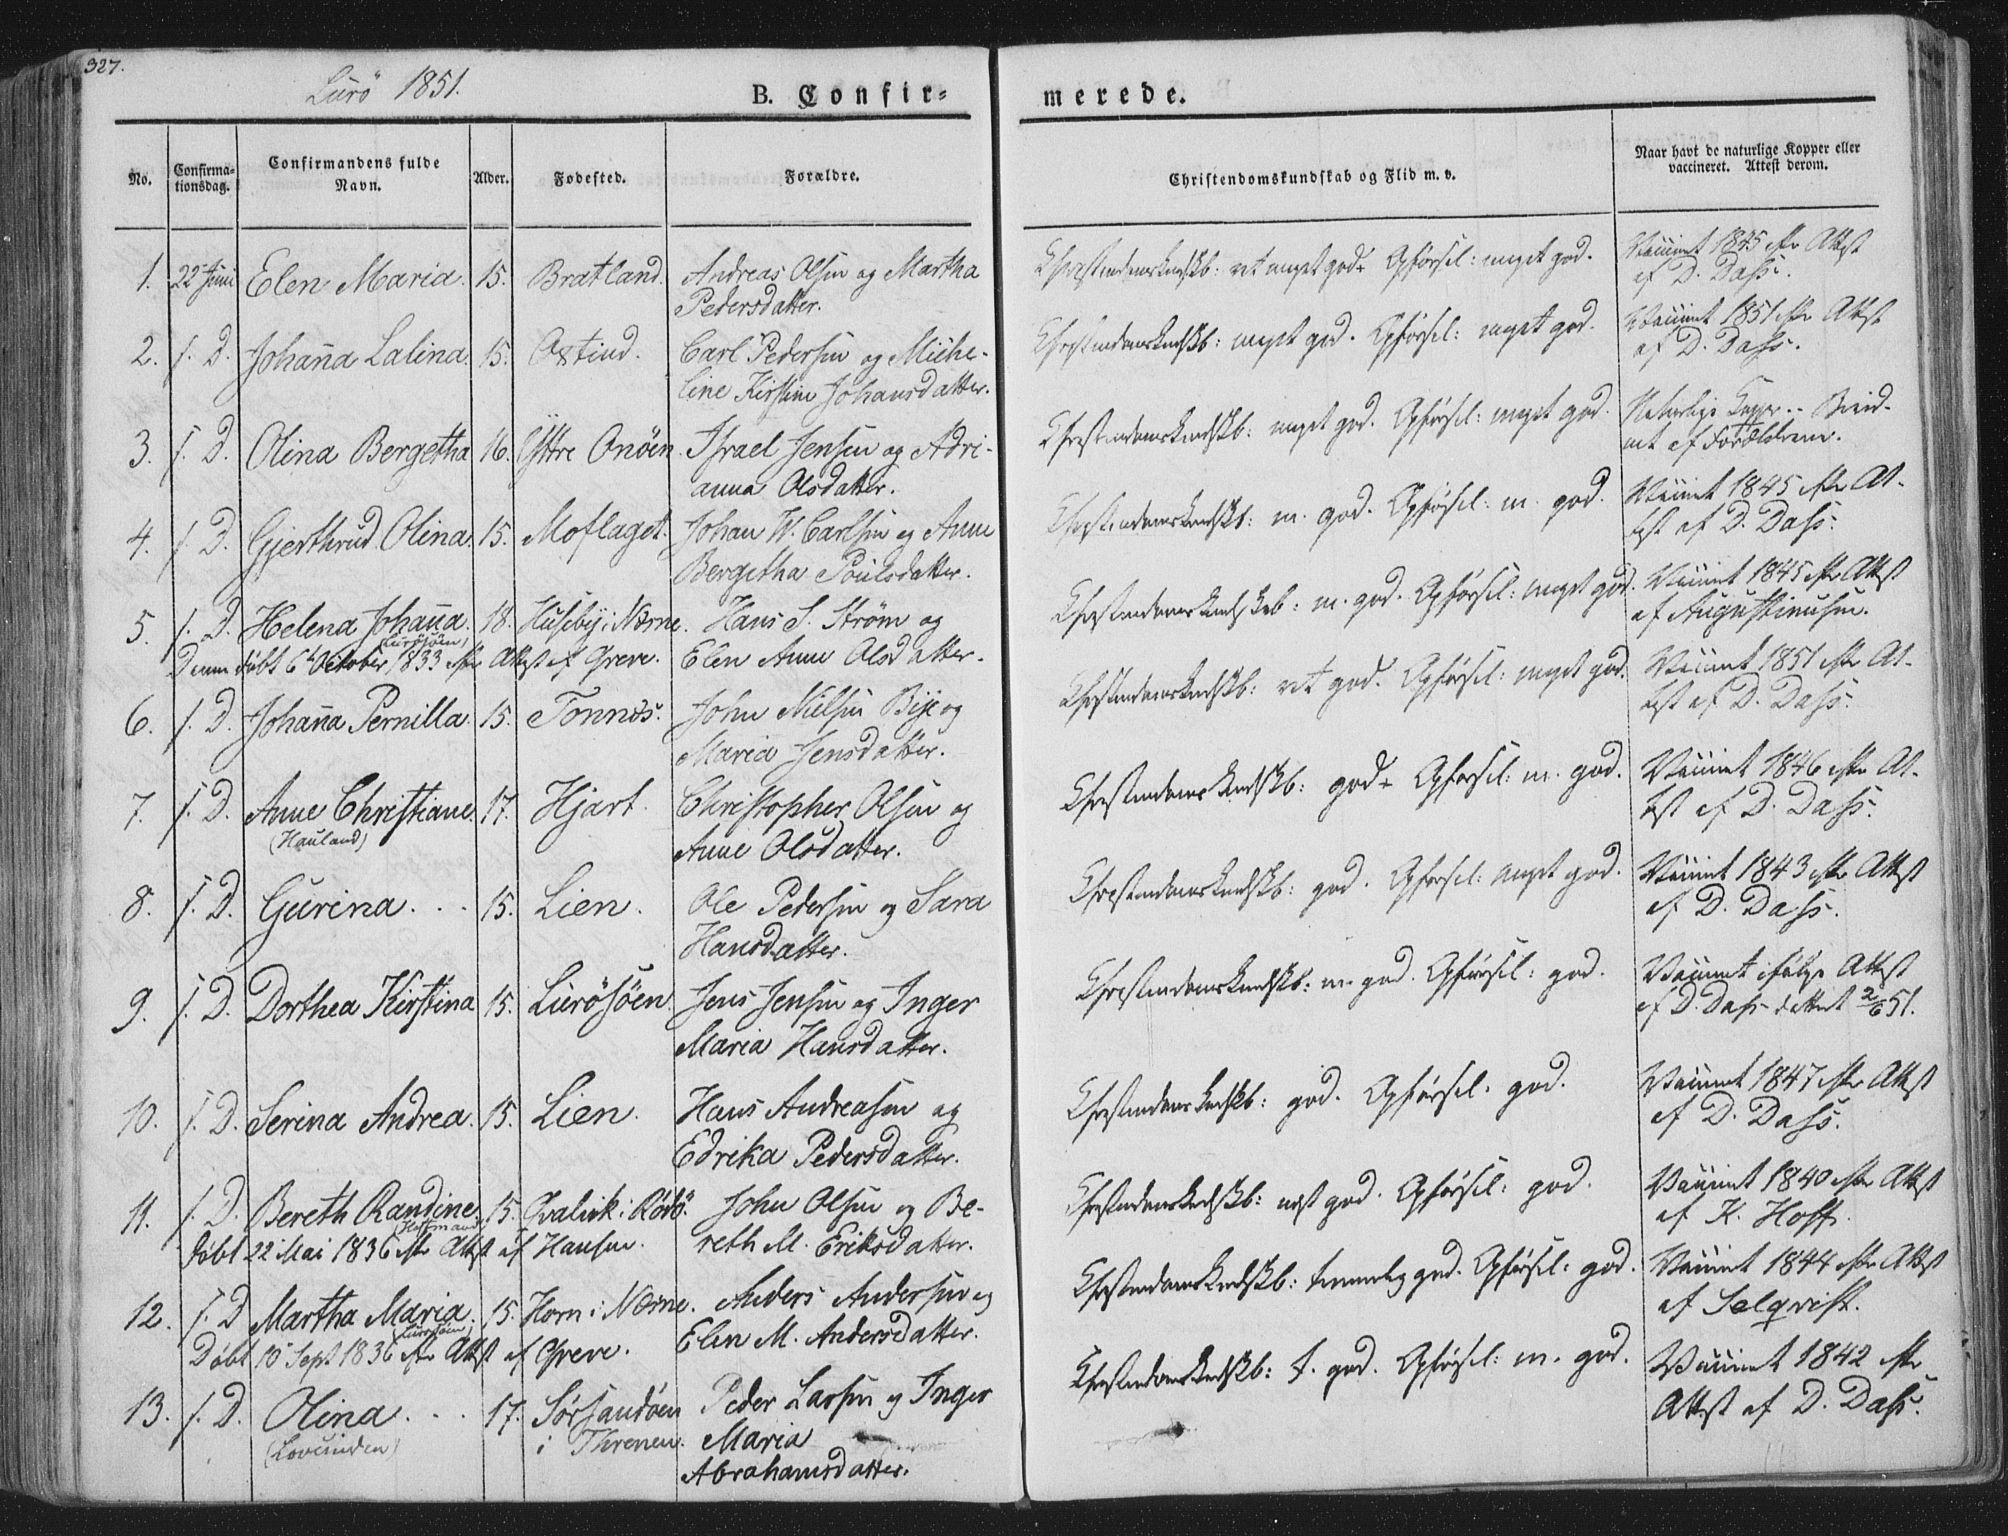 327.
Lurö 1851.
B. Confir=
merede.
No.
Confirma=
tionsdag.
Confirmandens fulde
Navn.
Alder.
Fødested.
Forældre.
Christendomskundskab og Flid m. v.
Naar havt de naturlige Kopper eller
vaccineret. Attest derom.
1. 22 Juni Elen Maria. 15. Bratland. Andreas Olsen og Martha
Pedersdatter.
Christendomskundskb: ret meget god. Opførsel: meget god.
Vaccinert 1845 efter Attest
af D. Dass.
2. s. D. Johanna Lalina. 15. Oxtind. Carl Pedersen og Miche-
line Kirstine Johansdatter.
Christendomskundskb: meget god. Opførsel: meget god.
Vaccinert 1851 efter Attest
af D. Dass.
3. s. D. Olina Bergetha 16. Yttre Onöen. Israel Jensen og Adri-
anna Olsdatter.
Christendomskundskb: meget god. Opførsel: meget god.
Naturlige Kopper
af Forældrene.
4. s. D. Gjerthrud Olina. 15. Moflaget. Johan W. Carlsen og Anne
Bergitha Poulsdatter.
Christendomskundskb: m. god. Opførsel: m. god.
Vaccinert 1845 efter At-
test af D. Dass.
5. s. D. Helena Johanna. 18. Huseby i Næsne. Hans S. Strøm og
(Lurösöen)
Denne døbt 6 October 1833 efter Attest af Greve. Elen Anne Olsdatter.
Christendomskundskab: m. god. Opførsel: meget god.
Vaccinert 1845 efter Attest
af Augustinusen.
6. s. D. Johanna Pernilla. 15. Tonnes. John Nielsen Bije og
Maria Jensdatter.
Christendomskundskb: ret god. Opførsel: meget god.
Vaccinert 1851 efter At-
test af D. Dass.
7. s. D. Anne Christiane. 17. Hjart. Christopher Olsen og
(Hauland)
Anne Olsdatter.
Christendomskundskb: god. Opførsel: m. god.
Vaccinert 1846 efter At-
test af D. Dass.
8. s. D. Gurina. . . 15. Lien. Ole Pedersen og Sara
Hansdatter.
Christendomskundskb: god. Opførsel: meget god.
Vaccinert 1843 efter Attest
af D. Dass.
9. s. D. Dorthea Kirstina 15. Lurösöen. Jens Jensen og Inger
Maria Hansdatter.
Christendomskundskb: m. god. Opførsel: god.
Vaccinert ifølge Attest
af D. Dass datert 2/6 51.
10. s. D. Serina Andrea. 15. Lien. Hans Andreasen og
Edrika Pedersdatter.
Christendomskundskb: god. Opførsel: god.
Vaccinert 1847 efter Attest
af D. Dass.
11. s. D. Bereth Randine. 15. Qvalvik i Rödö. John Olsen og Be-
døbt 22 Mai 1836 efter Attest af Hansen. reth M. Eriksdatter.
Christendomskundskb: næst god. Opførsel: god.
Vaccinert 1840 efter Attest
af K. Hoff.
12. s. D. Martha Maria. 15. Horn i Næsne. Anders Andersen og
(Lurösöen)
Døbt 10 Sept 1836 efter Attest af Greve. Elen M. Andersdatter.
Christendomskundskb: temmelig god. Opførsel: god.
Vaccinert 1844 efter Attest
af Selqvist.
13. s. D. Olina. . . 17. Sørsandöen Peder Larsen og Inger
(Lovunden) i Threnen. Maria
Abrahamsdatter.
Christendomskundskb: t. god. Opførsel: m. god.
Vaccinert 1842 efter
Attest af D. Dass.